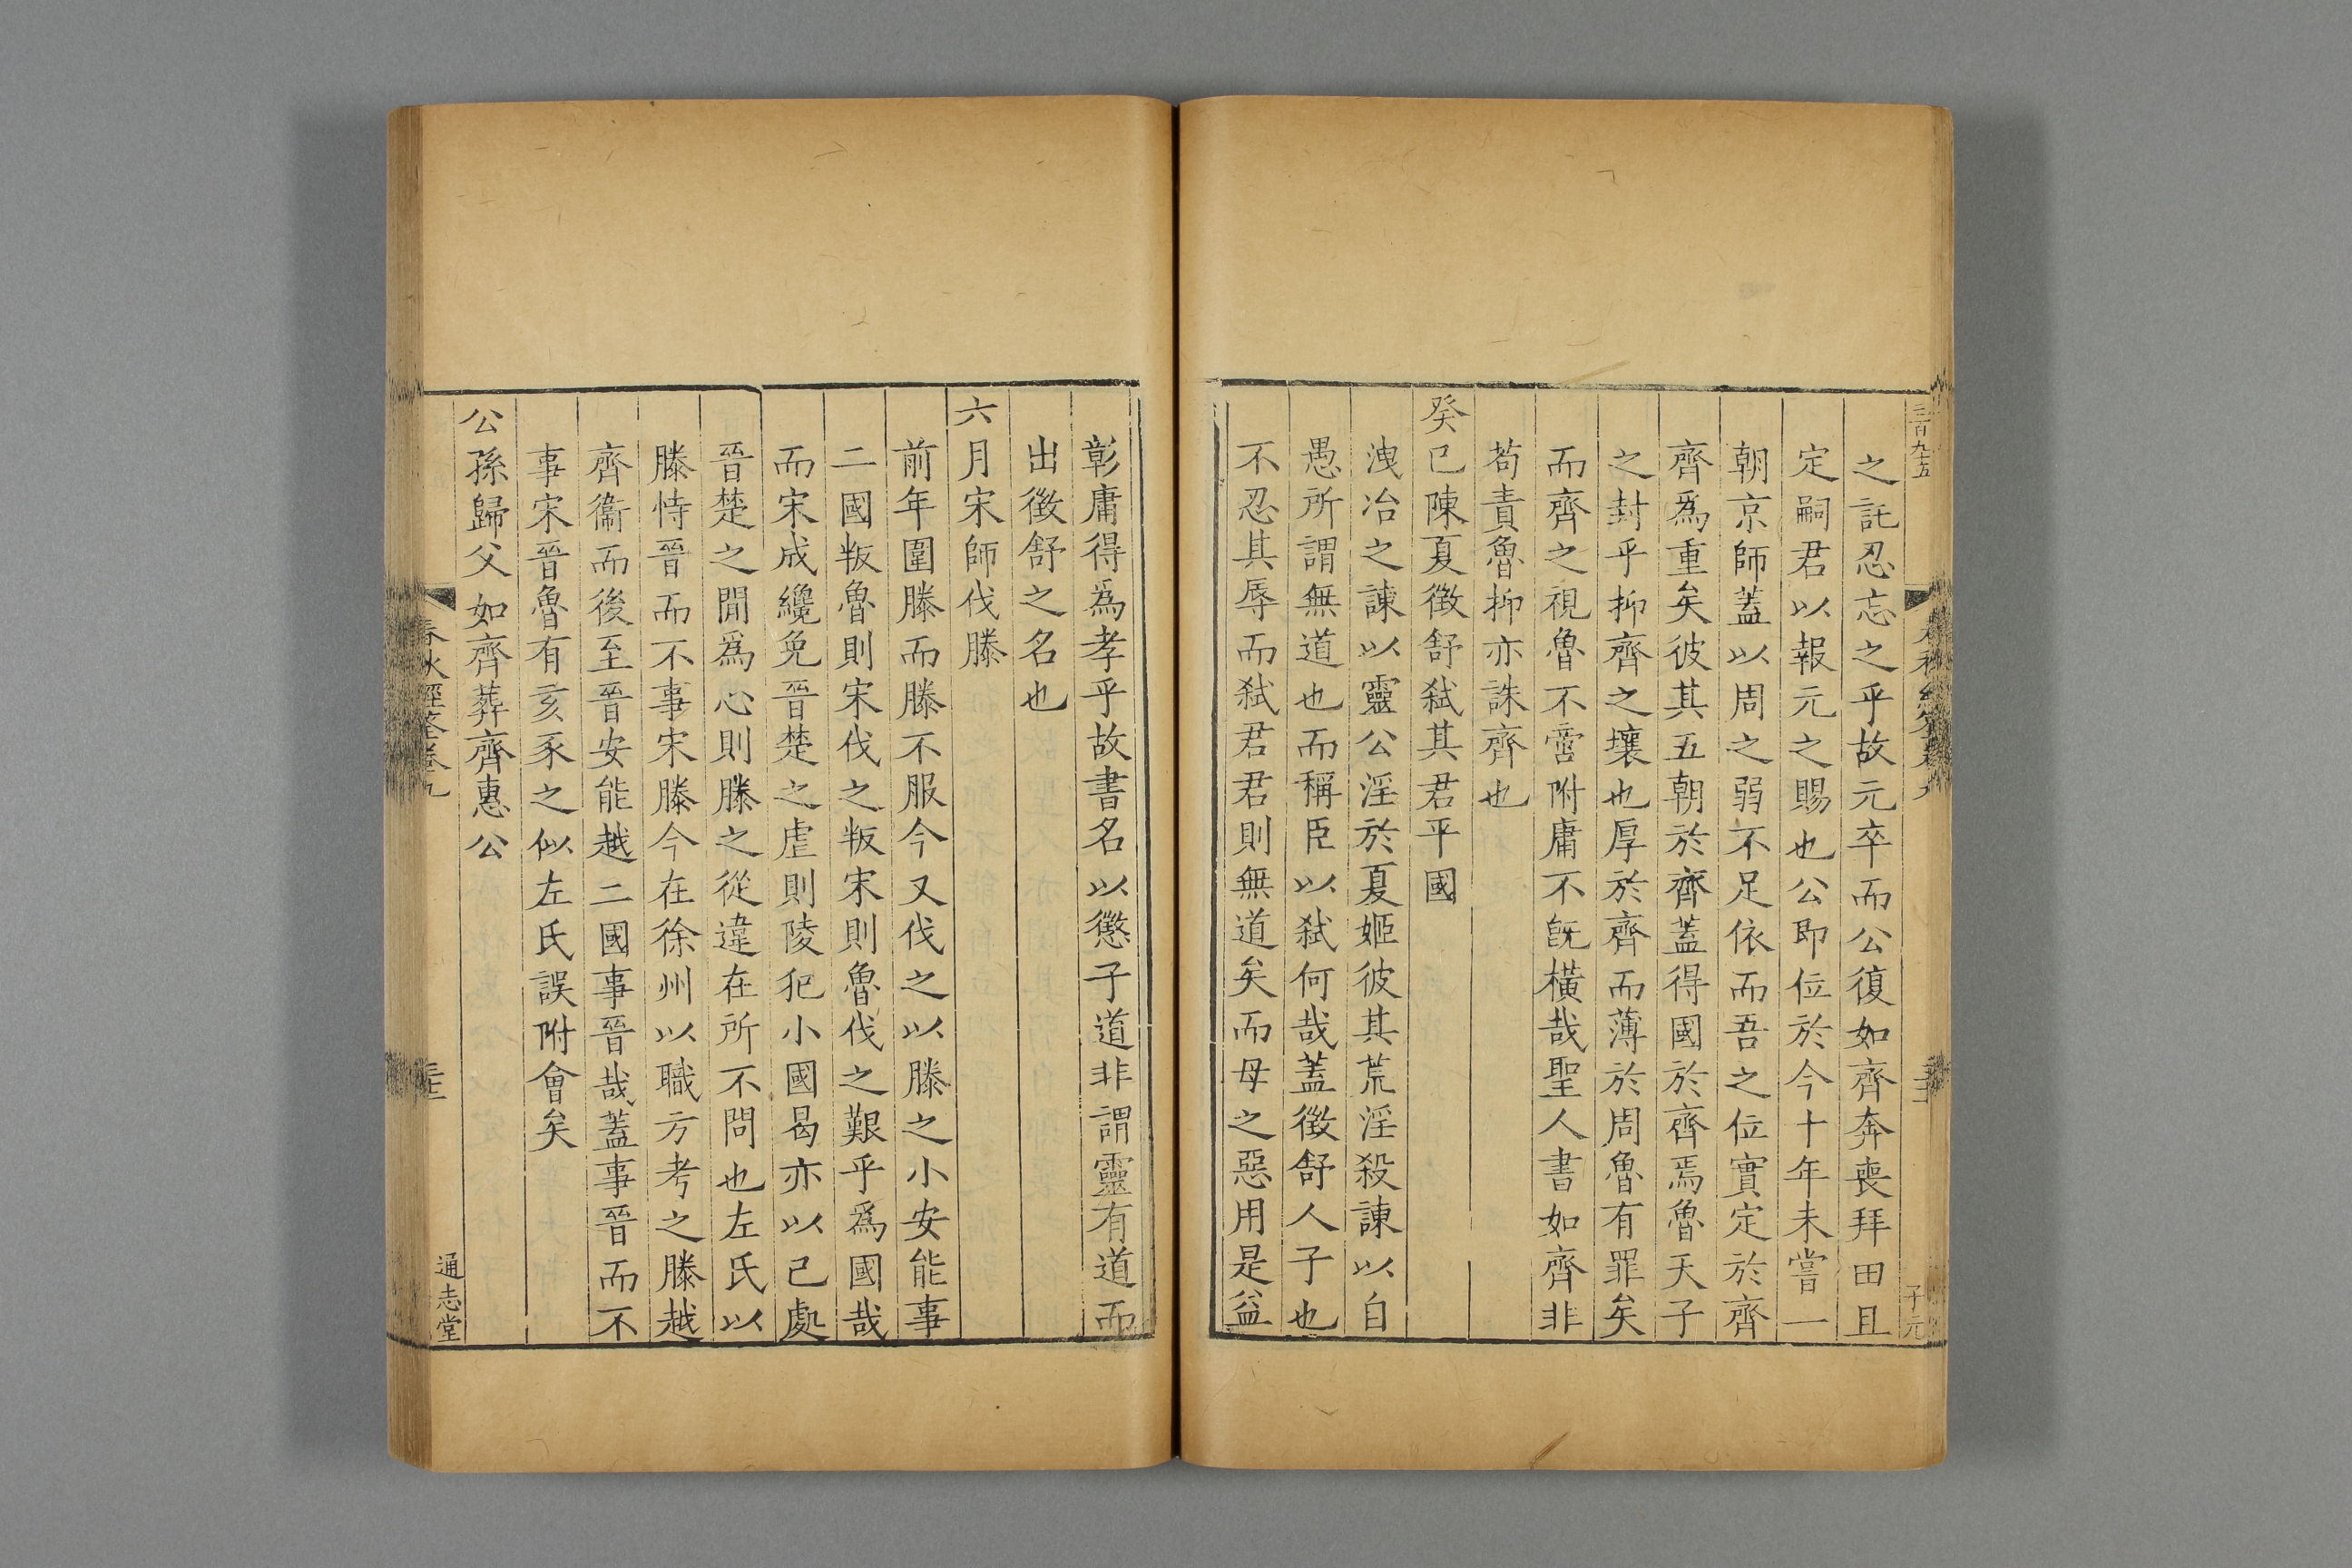 三百九十五
子元
之託忍忘之乎故元卒而公復如齊奔喪拜田且
定嗣君以報元之賜也公即位於今十年未嘗一
朝京師蓋以周之弱不足依而吾之位實定於齊
齊為重矣彼其五朝於齊蓋得國於齊焉魯天子
之封乎抑齊之壤也厚於齊而薄於周魯有罪矣
而齊之視魯不啻附庸不旣橫哉聖人書如齊非
苟責魯抑亦誅齊也
癸巳陳夏徵舒弑其君平國
洩冶之諫以靈公淫於夏姬彼其荒淫殺諫以自
愚所謂無道也而稱臣以弑何哉蓋徵舒人子也
不忍其辱而弑君君則無道矣而母之惡用是益
彰庸得為孝乎故書名以懲子道非謂靈有道而
出徵舒之名也
六月宋師伐滕
前年圍滕而滕不服今又伐之以滕之小安能事
二國叛魯則宋伐之叛宋則魯伐之艱乎為國哉
而宋成纔免晉楚之虐則陵犯小國曷亦以己處
晉楚之閒為心則滕之從違在所不問也左氏以
滕恃晉而不事宋滕今在徐州以職方考之滕越
齊衞而後至晉安能越二國事晉哉蓋事晉而不
事宋晉魯有亥豕之似左氏誤附會矣
公孫歸父如齊葬齊惠公
春秋經筌卷九
通志堂